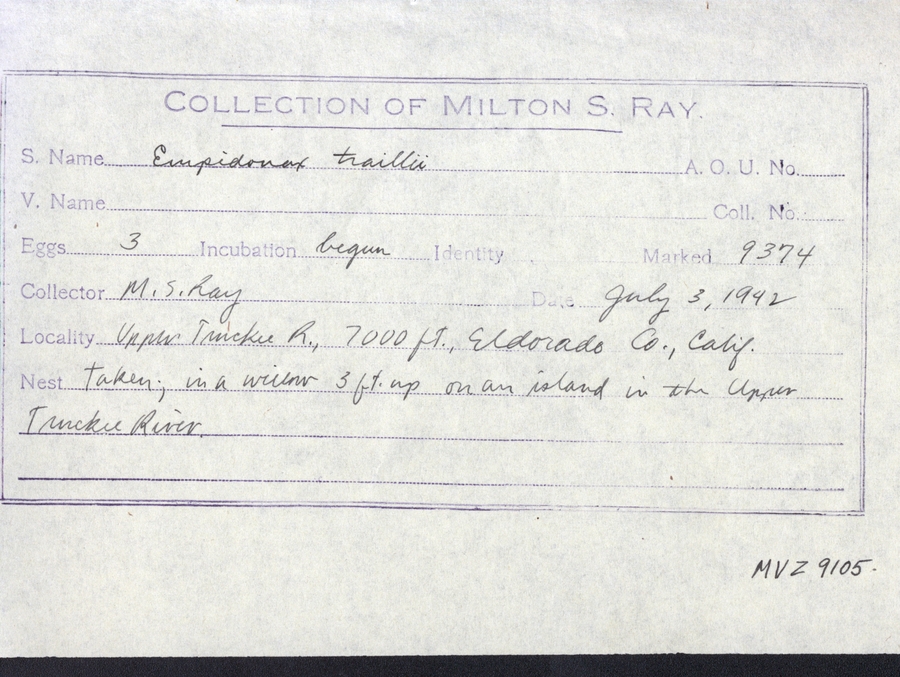 COLLECTION OF MILTON S. RAY.
S. Name Empidonax traillii A. O. U. No.
V. Name Coll. No.
Eggs 3 Incubation begun Identity Marked 9374
Collector M. S. Ray Date July 3, 1942
Locality Upper Truckee R., 7000 ft., Eldorado Co., Calif.
Nest taken; in a willow 3 ft. up on an island in the Upper
Truckee River.
MVZ 9105.